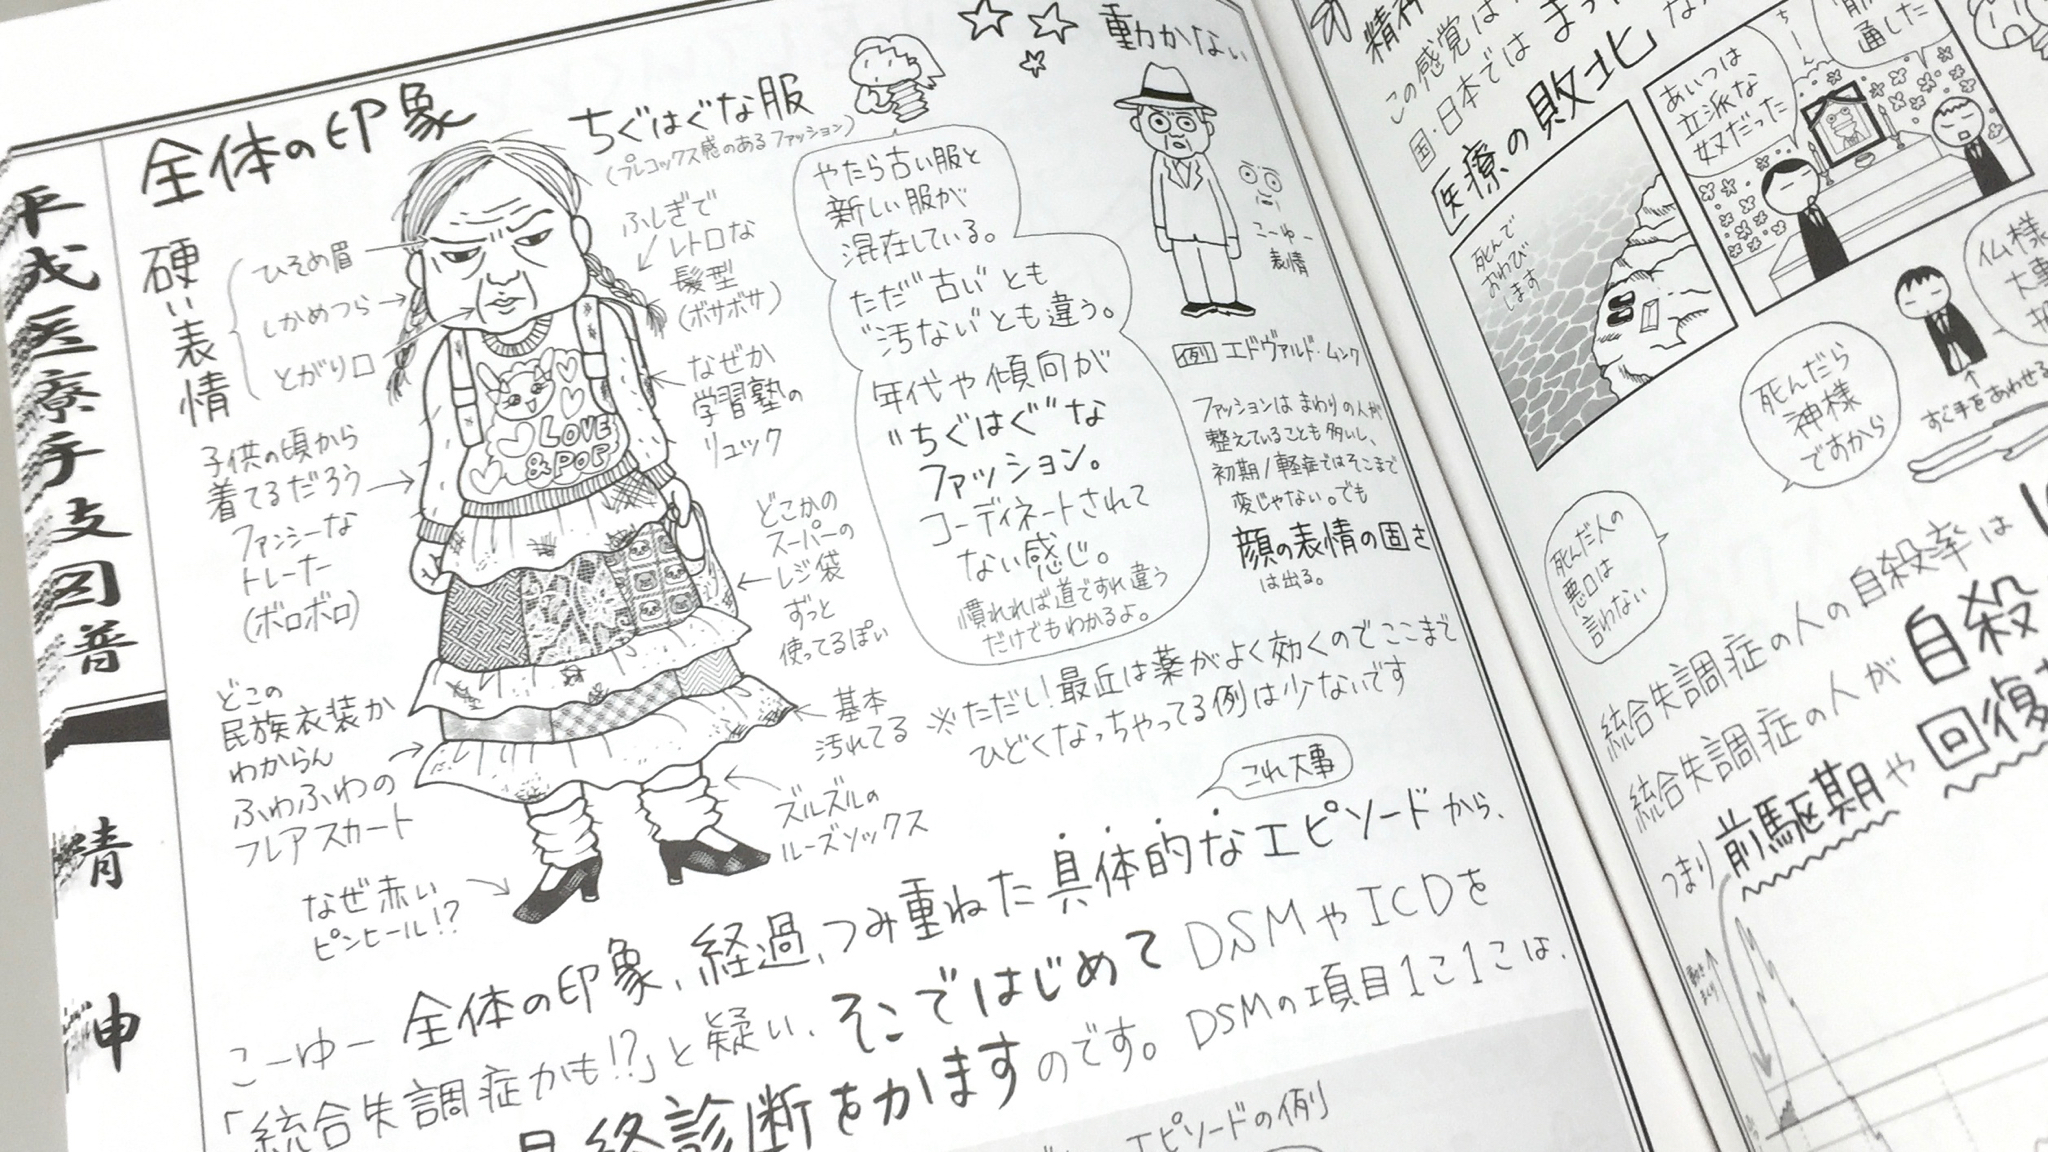 平成医療手支図普
精神
全体の印象
硬い表情
ひそめ眉
しかめつら
とがり口
子供の頃から
着てるだろう
ファンシーな
トレーナー
(ボロボロ)
どこの
民族衣装か
わからん
ふわふわの
フレアスカート
なぜ赤い
ピンヒール!?
LOVE
&POP
ちぐはぐな服
(プレコックス感のあるファッション)
ふしぎで
レトロな
髪型
(ボサボサ)
なぜか
学習塾の
リュック
どこかの
スーパーの
レジ袋
ずっと
使ってるぽい
基本
汚れてる
ズルズルの
ルーズソックス
やたら古い服と
新しい服が
混在している。
ただ"古い"とも
"汚ない"とも違う。
年代や傾向が
"ちぐはぐ"な
ファッション。
コーディネートされて
ない感じ。
慣れれば道ですれ違う
だけでもわかるよ。
動かない
こーゆー
表情
例 エドヴァルド・ムンク
ファッションはまわりの人が
整えていることも多いし、
初期/軽症ではそこまで
変じゃない。でも
顔の表情の固さ
は出る。
※ただし!最近は薬がよく効くのでここまで
ひどくなっちゃってる例は少ないです
これ大事
こーゆー全体の印象、経過、つみ重ねた具体的なエピソードから、
「統合失調症かも!?」と疑い、そこではじめてDSMやICDを
最終診断をかますのです。DSMの項目1こ1こは、
エピソードの例
精神
この感覚は
国・日本では まっ
医療の敗北 な
死んで
おわび
します
あいつは
立派な
奴だった
ちーん
通した
仏様
大事
死んだら
神様
ですから
すぐ手をあわせる
死んだ人の
悪口は
言わない
統合失調症の人の自殺率は
統合失調症の人が自殺
つまり前駆期や回復